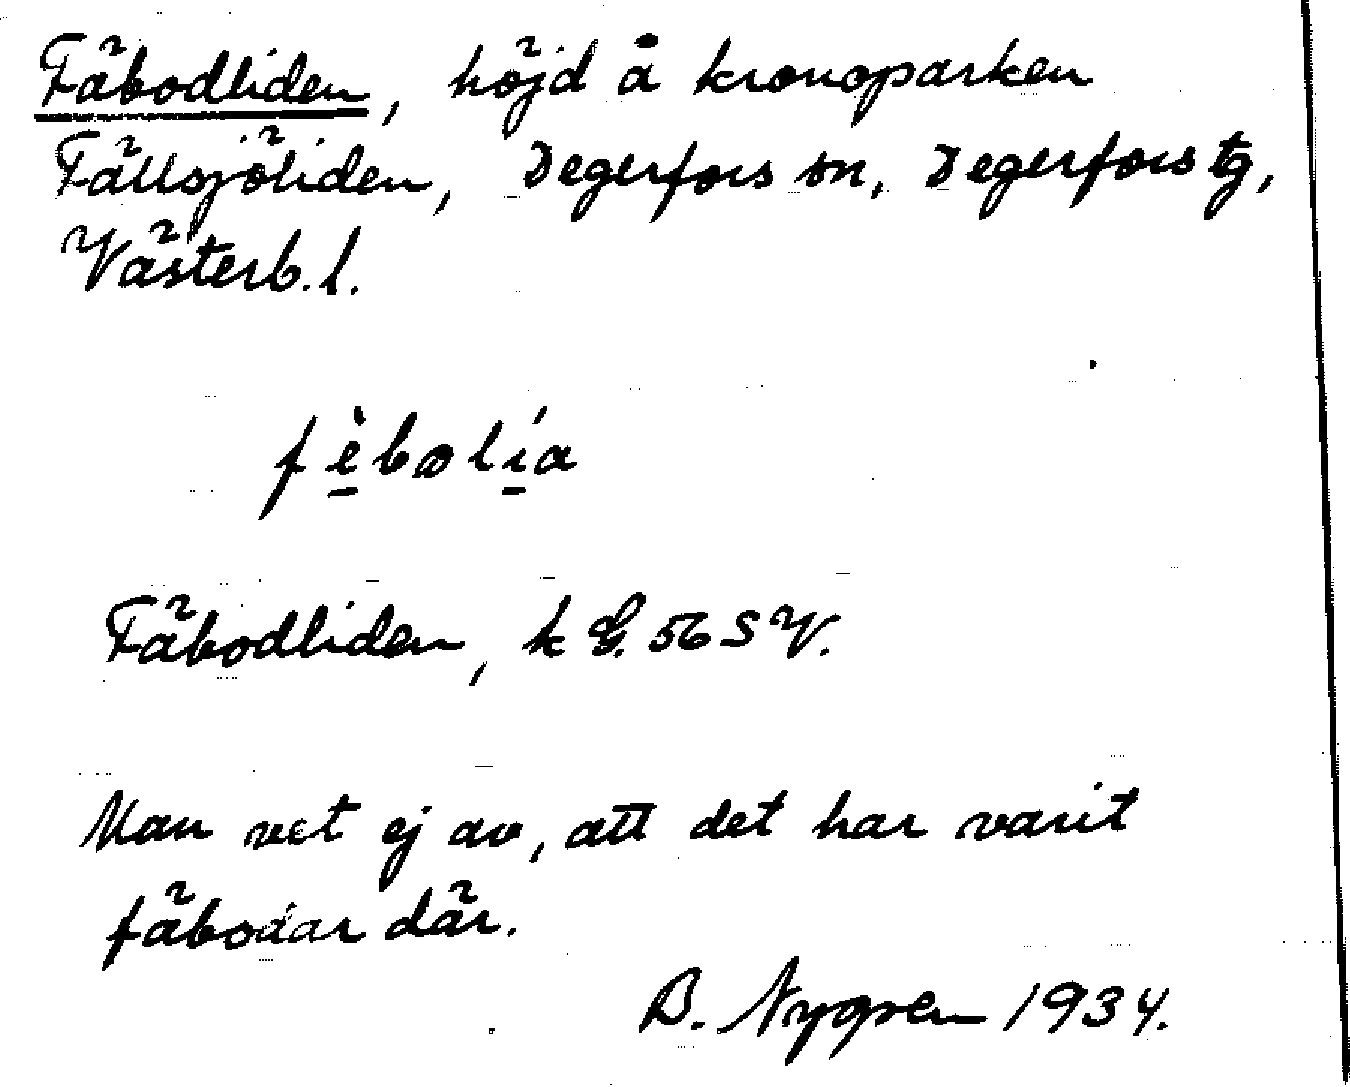 Fäbodliden, höjd å kronoparken
Fällsjöliden, Degerfors sn, Degerfors tg,
Västerb. l.
fèbolía
Fäbodliden, k G. 56 SV.
Man vet ej av, att det har varit
fäbodar där.
B. Nygren 1934.